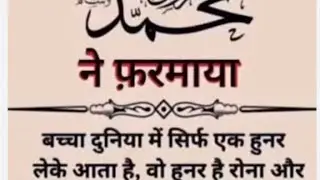 محمد
ने फ़रमाया
बच्चा दुनिया में सिर्फ एक हुनर
लेके आता है, वो हुनर है रोना और